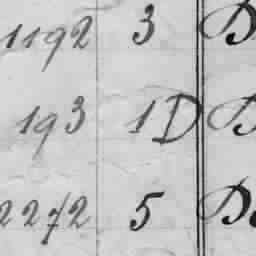 1192 3 B
193 1D B
2272 5 Be